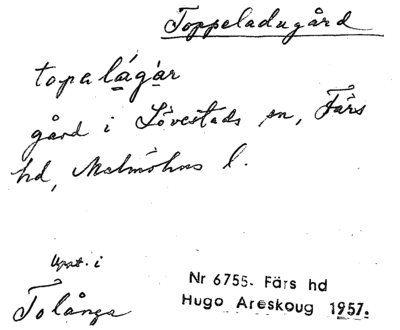 Toppeladugård
topalágàr
gård i Lövestads sn, Färs
hd, Malmöhus l.
Uppt. i
Tolånga
Nr 6755. Färs hd
Hugo Areskoug 1957.